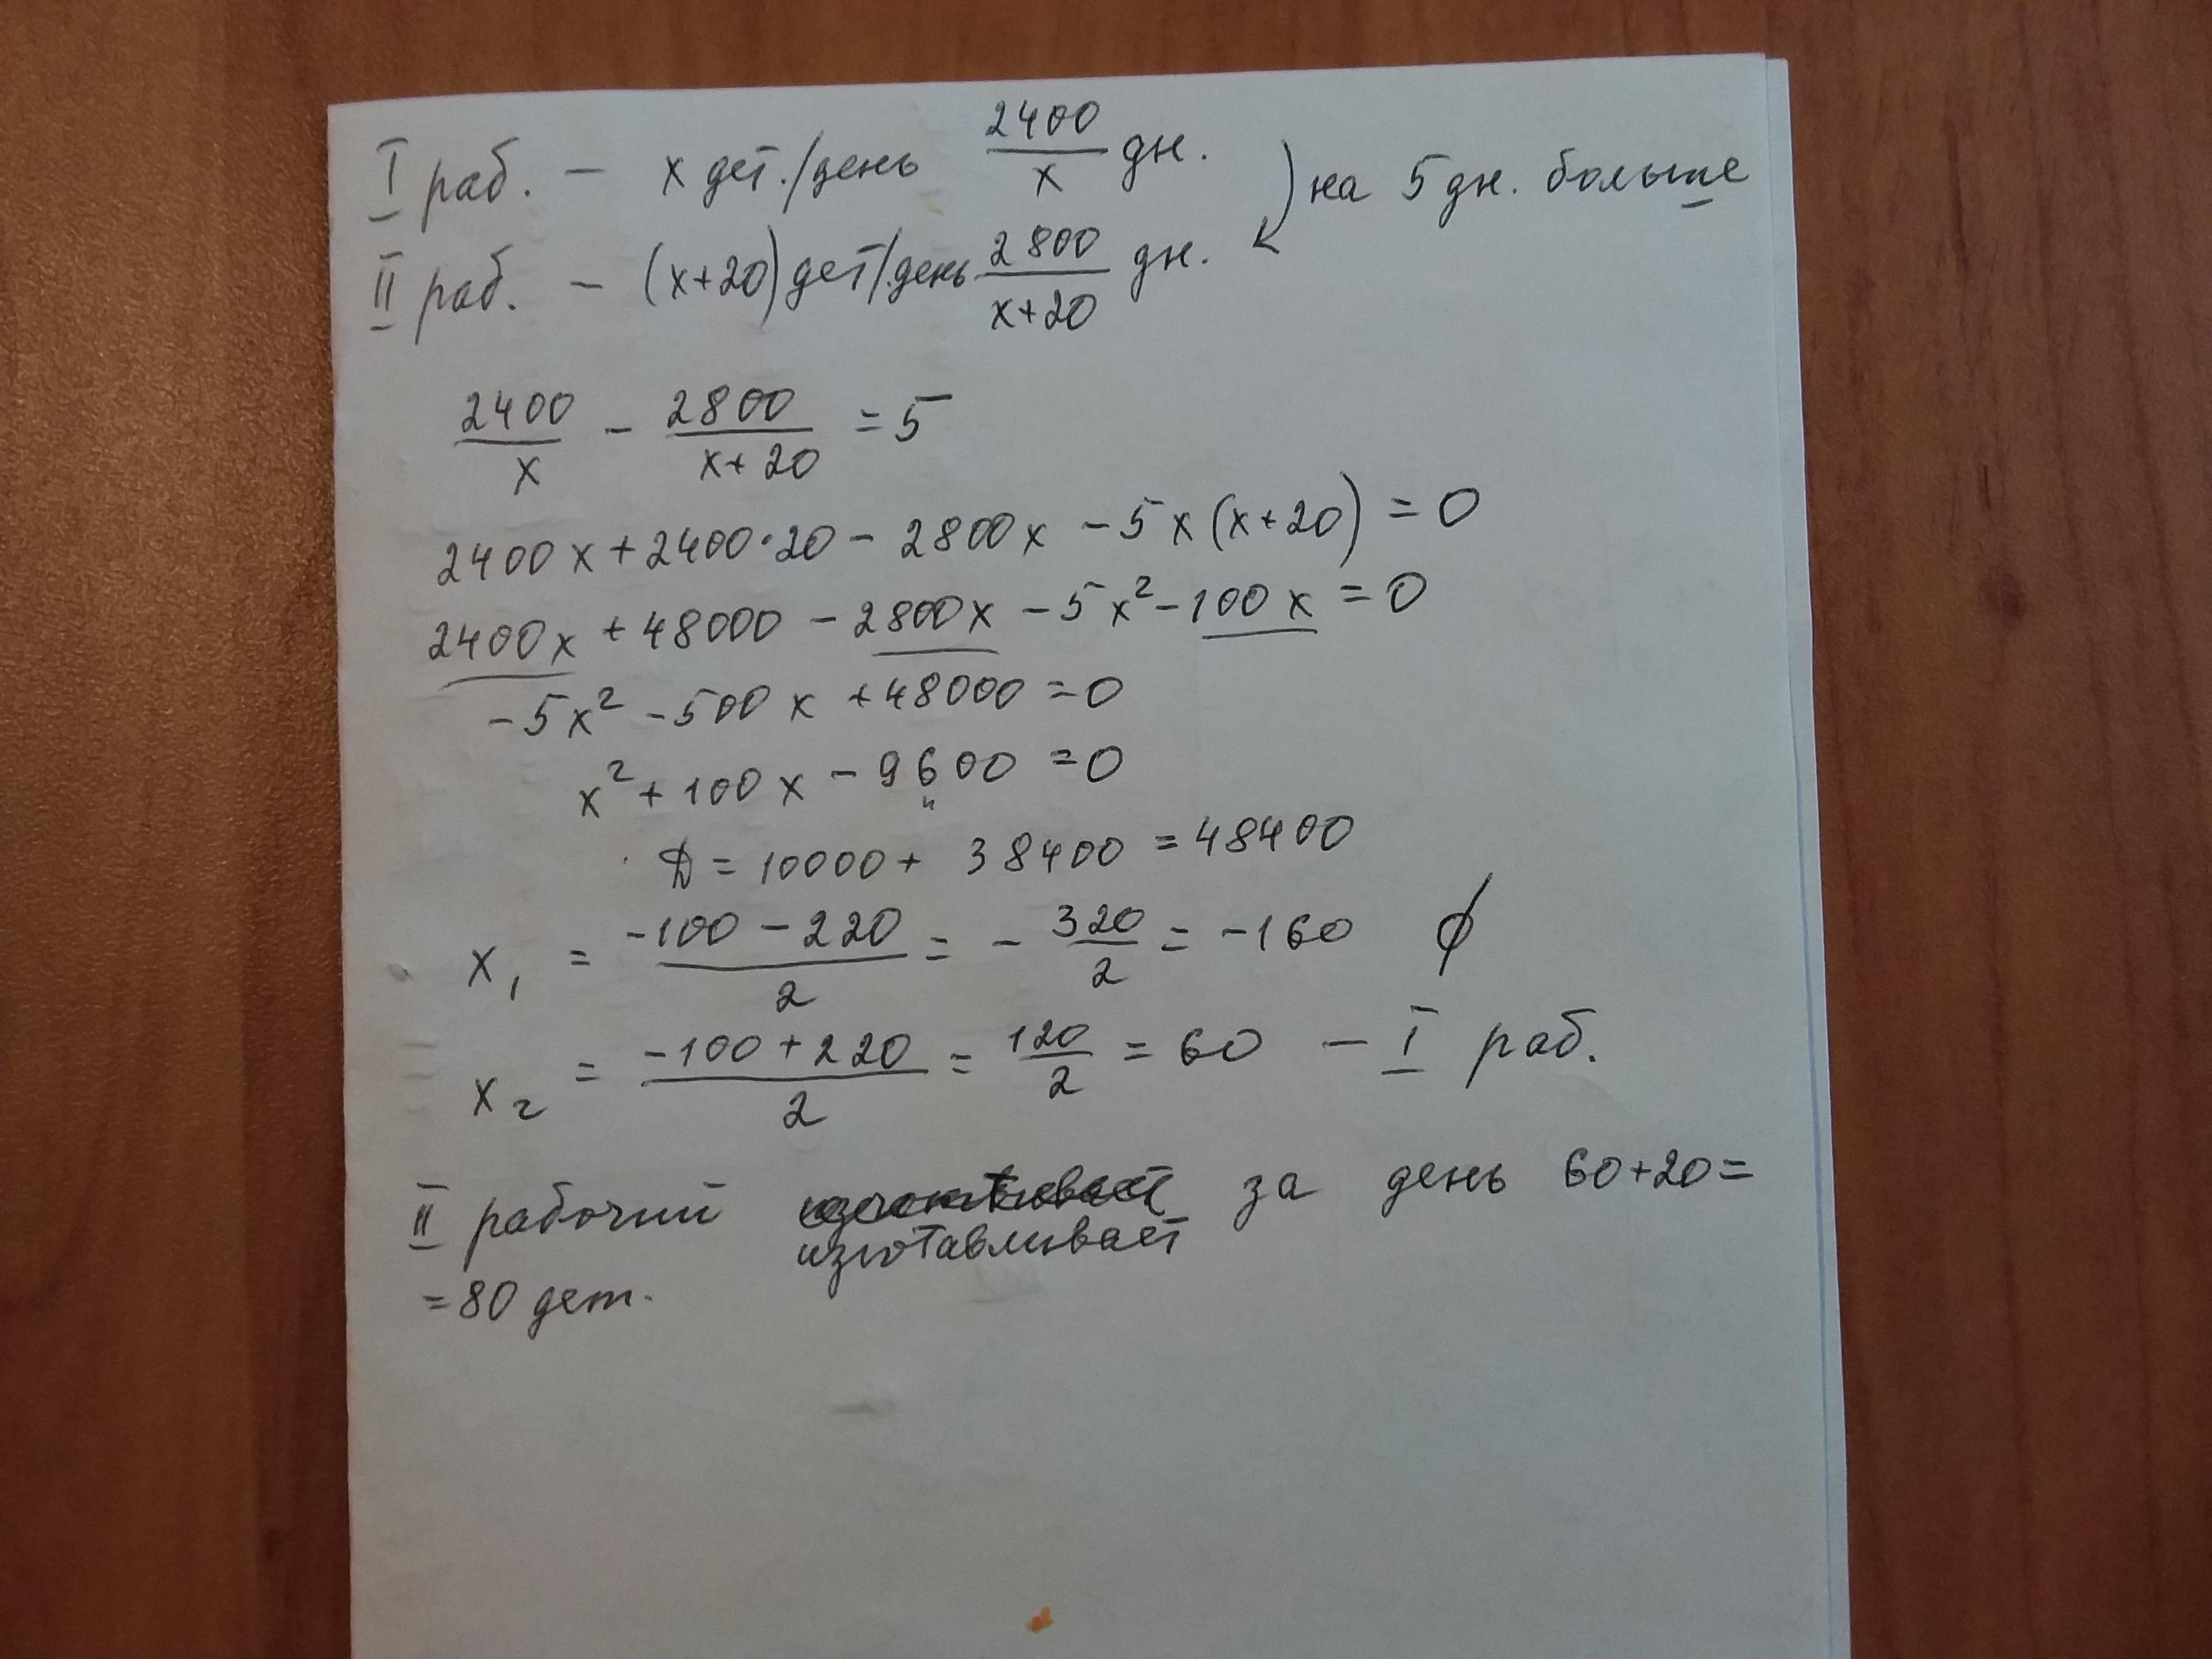 I раб. – x дет./день 2400/x дн. ) на 5 дн. больше
II раб. – (x+20) дет/день 2800/x+20 дн.
2400/x - 2800/x+20 = 5
2400x + 2400·20 - 2800x - 5x(x+20) = 0
2400x + 48000 - 2800x - 5x² - 100x = 0
-5x² - 500x + 48000 = 0
x² + 100x - 9600 = 0
D = 10000 + 38400 = 48400
x₁ = -100 - 220/2 = - 320/2 = -160 ∅
x₂ = -100 + 220/2 = 120/2 = 60 – I раб.
II рабочий за день 60+20=
изготавливает
=80 дет.